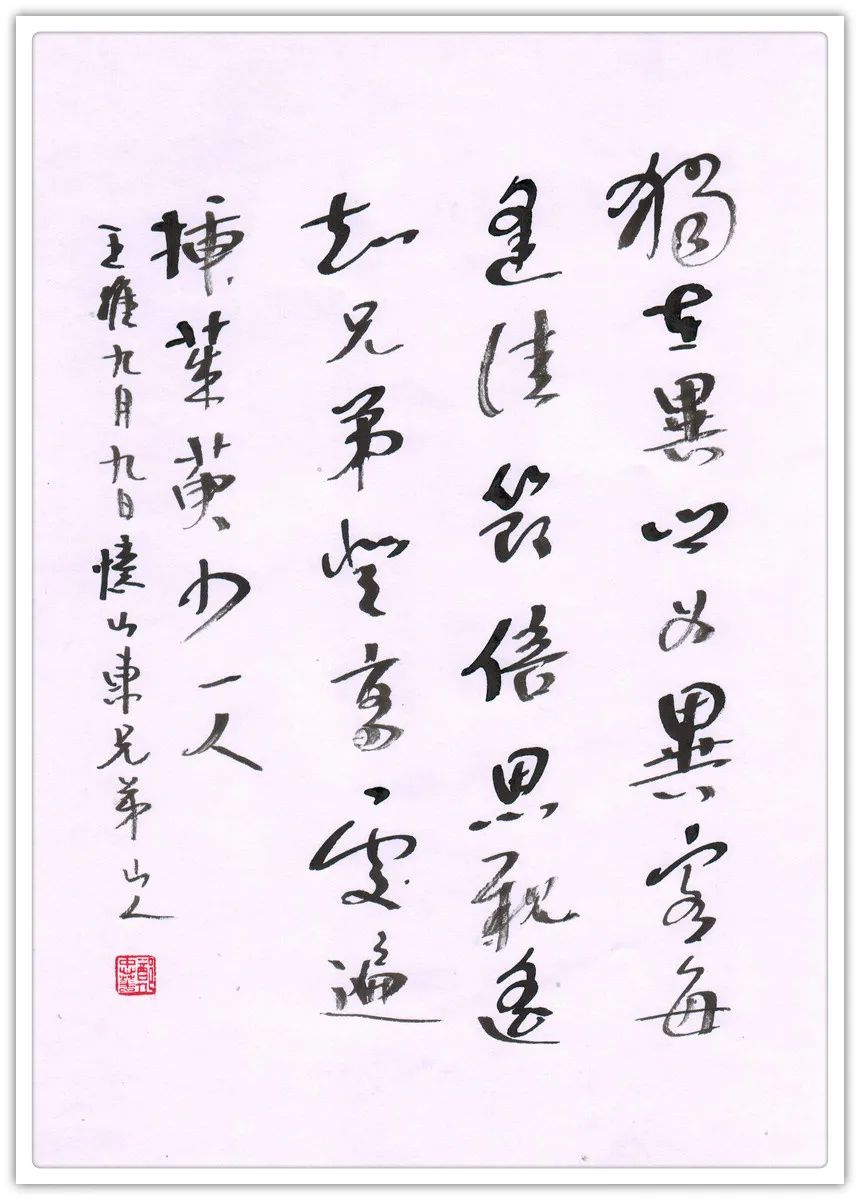 獨在異鄉為異客每
逢佳節倍思親遙
知兄弟登高處遍
插茱萸少一人
王維九月九日憶山東兄弟山人